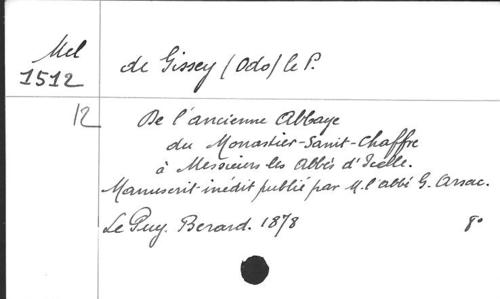 Mel
1512
de Gissey (Odo) le P.
12
De l'ancienne Abbaye
du Monastier-Sanit-Chaffre
à Messieurs les Abbés d'Icelle.
Manuscrit inédit publié par M. l'abbé G. Arsac.
Le Puy. Berard. 1878 8°